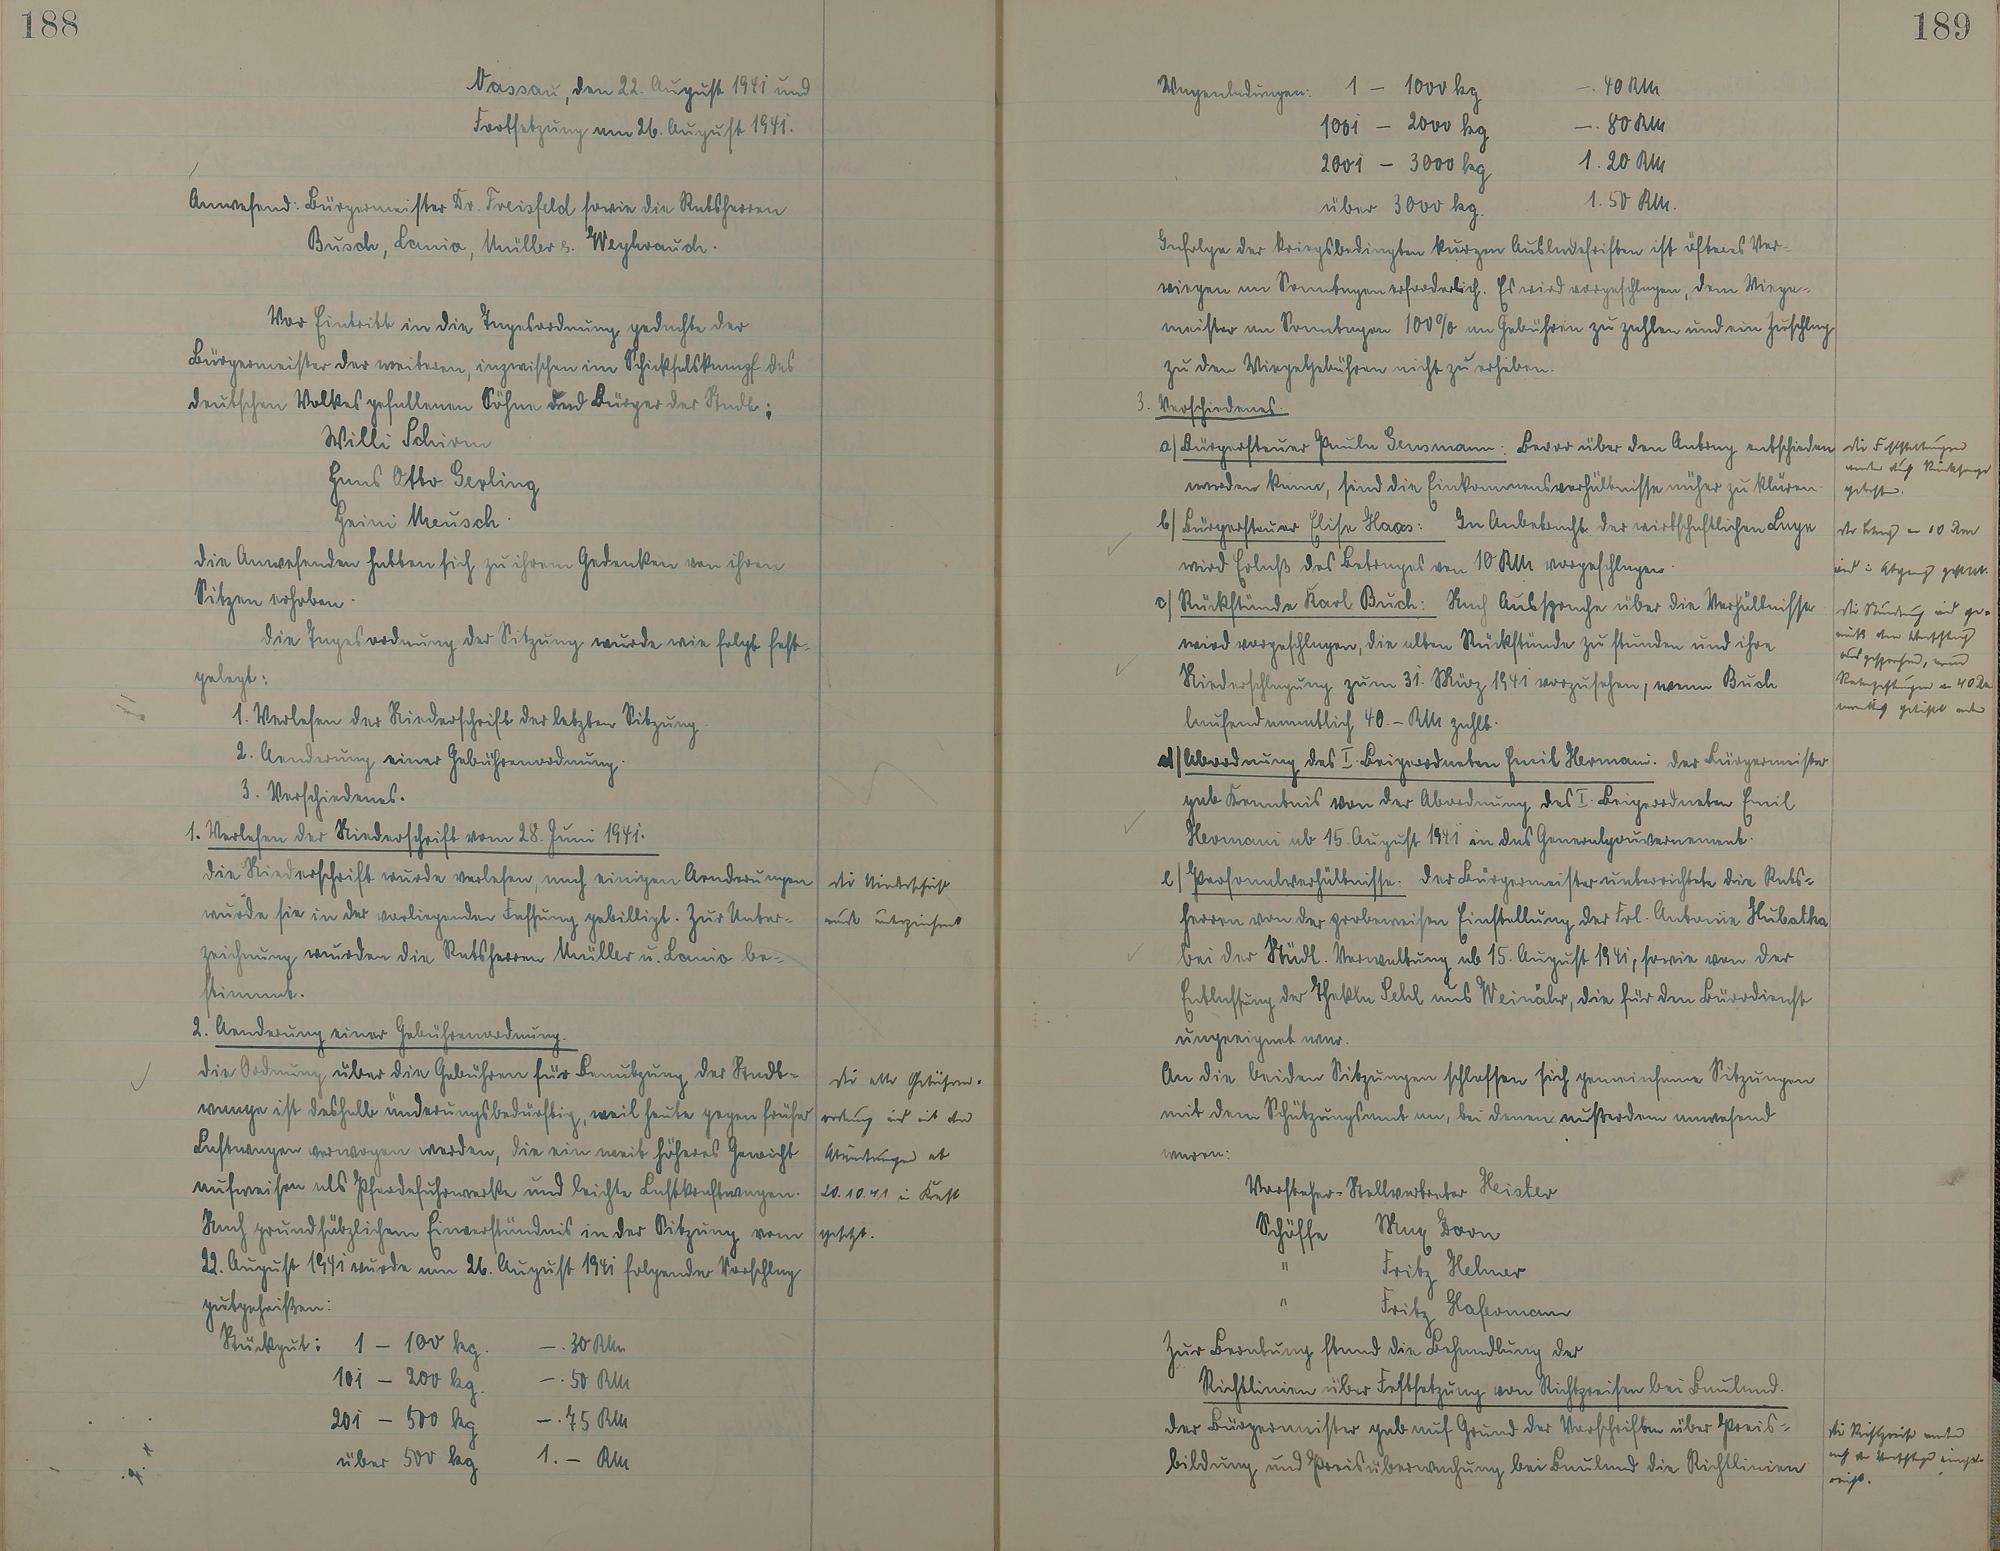 188
Nassau, den 22. August 1941 und
Fortsetzung am 26. August 1941.
Anwesend: Bürgermeister Dr. Freisfeld sowie die Ratsherren
Busch, Lanio, Müller u. Weyhrauch.
Vor Eintritt in die Tagesordnung gedachte der
Bürgermeister der weiteren, inzwischen im Schicksalskampf des
deutschen Volkes gefallenen Söhne und Bürger der Stadt:
Willi Schirm
Hans Otto Gerling
Heini Meusch.
Die Anwesenden hatten sich zu ihrem Gedenken von ihren
Sitzen erhoben.
Die Tagesordnung der Sitzung wurde wie folgt fest-
gelegt:
1. Verlesen der Niederschrift der letzten Sitzung.
2. Aenderung einer Gebührenordnung.
3. Verschiedenes.
1. Verlesen der Niederschrift vom 28. Juni 1941.
Die Niederschrift wurde verlesen, nach einigen Aenderungen
wurde sie in der vorliegenden Fassung gebilligt. Zur Unter-
zeichnung wurden die Ratsherren Müller u. Lanio be-
stimmt.
Die Niederschrift
wurde unterzeichnet
2. Aenderung einer Gebührenordnung.
Die Ordnung über die Gebühren für Benutzung der Stadt-
waage ist deshalb änderungsbedürftig, weil heute gegen früher
Lastwagen verwogen werden, die ein weit höheres Gewicht
aufweisen als Pferdefuhrwerke und leichte Lastkraftwagen.
Nach grundsätzlichem Einverständnis in der Sitzung vom
22. August 1941 wurde am 26. August 1941 folgender Vorschlag
gutgeheißen:
Die alte Gebühren-
ordnung wird mit den
Abänderungen ab
20.10.41 in Kraft
gesetzt.
Stückgut: 1 – 100 kg. –.30 RM
101 – 200 kg. –.50 RM
201 – 500 kg –.75 RM
über 500 kg 1.– RM
189
Wagenladungen: 1 – 1000 kg –.40 RM
1001 – 2000 kg –.80 RM
2001 – 3000 kg 1.20 RM
über 3000 kg. 1.50 RM.
Infolge der kriegsbedingten kurzen Ausladefristen ist öfteres Ver-
wiegen an Sonntagen erforderlich. Es wird vorgeschlagen, dem Wiege-
meister an Sonntagen 100% an Gebühren zu zahlen und ein Zuschlag
zu den Wiegegebühren nicht zu erheben.
3. Verschiedenes.
a) Bürgersteuer Paula Gensmann: Bevor über den Antrag entschieden
werden kann, sind die Einkommensverhältnisse näher zu klären.
Die Feststellungen
werden durch Rückfrage
b) Bürgersteuer Elise Haas: In Anbetracht der wirtschaftlichen Lage
wird Erlaß des Betrages von 10 RM vorgeschlagen.
Der Betrag von 10 RM
wird in Abgang gestellt.
c) Rückstände Karl Buch: Nach Aussprache über die Verhältnisse
wird vorgeschlagen, die alten Rückstände zu stunden und ihre
Niederschlagung zum 31. März 1941 vorzusehen, wenn Buch
laufend monatlich 40.– RM zahlt.
Die Stundung wird ge-
mäß dem Vorschlag
ausgesprochen, wenn
von 40 RM
monatlich geleistet werden
d) Abordnung des I. Beigeordneten Emil Hermani. Der Bürgermeister
gab Kenntnis von der Abordnung des I. Beigeordneten Emil
Hermani ab 15. August 1941 in das Generalgouvernement.
e) Personalverhältnisse: Der Bürgermeister unterrichtete die Rats-
herren von der probeweisen Einstellung der Frl. Antonie Hubatka
bei der Städt. Verwaltung ab 15. August 1941, sowie von der
Entlassung der Thekla Sehl aus Weinähr, die für den Bürodienst
ungeeignet war.
An die beiden Sitzungen schlossen sich gemeinsame Sitzungen
mit dem Schätzungsamt an, bei denen außerdem anwesend
waren:
Vorsteher-Stellvertreter Heisler
Schöffe Max Dorn
" Fritz Helmer
" Fritz Hafermann
Zur Beratung stand die Behandlung der
Richtlinien über Festsetzung von Richtpreisen bei Bauland.
Der Bürgermeister gab auf Grund der Vorschriften über Preis-
bildung und Preisüberwachung bei Bauland die Richtlinien
Die Richtpreise werden
nach dem Vorschlage einge-
reicht.